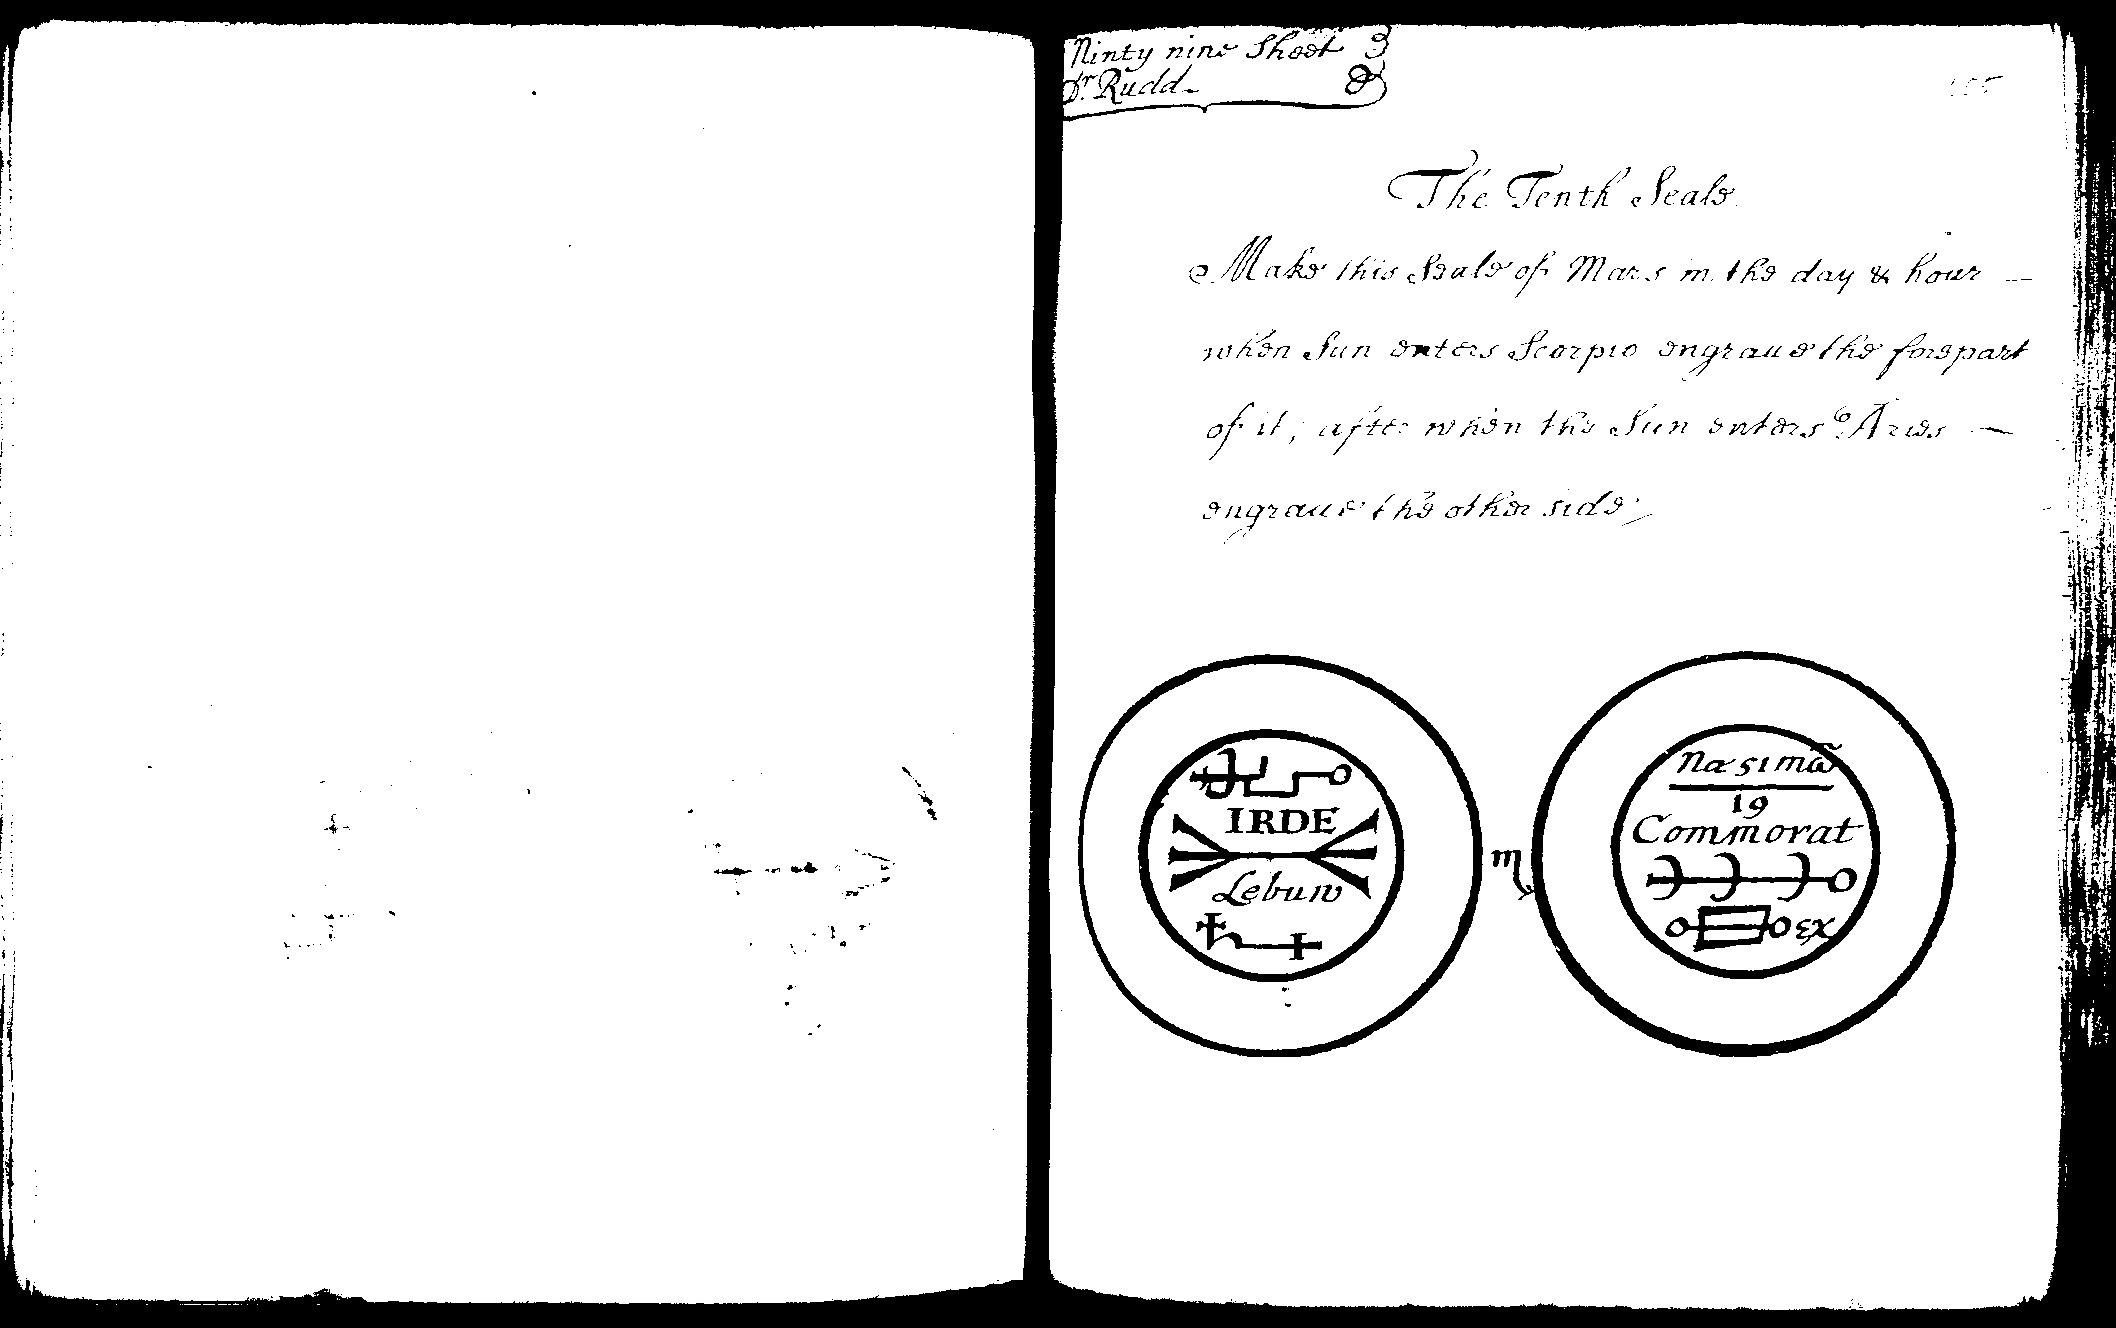 Ninty nine Sheet 3
Dr. Rudd.
The Tenth Seale
Make this Seale of Mars in the day & hour
when Sun enters Scorpio engraue the forepart
of it, after when the Sun enters Aries
engraue the other side
IRDE
Lebuw
♏
19
Commorat